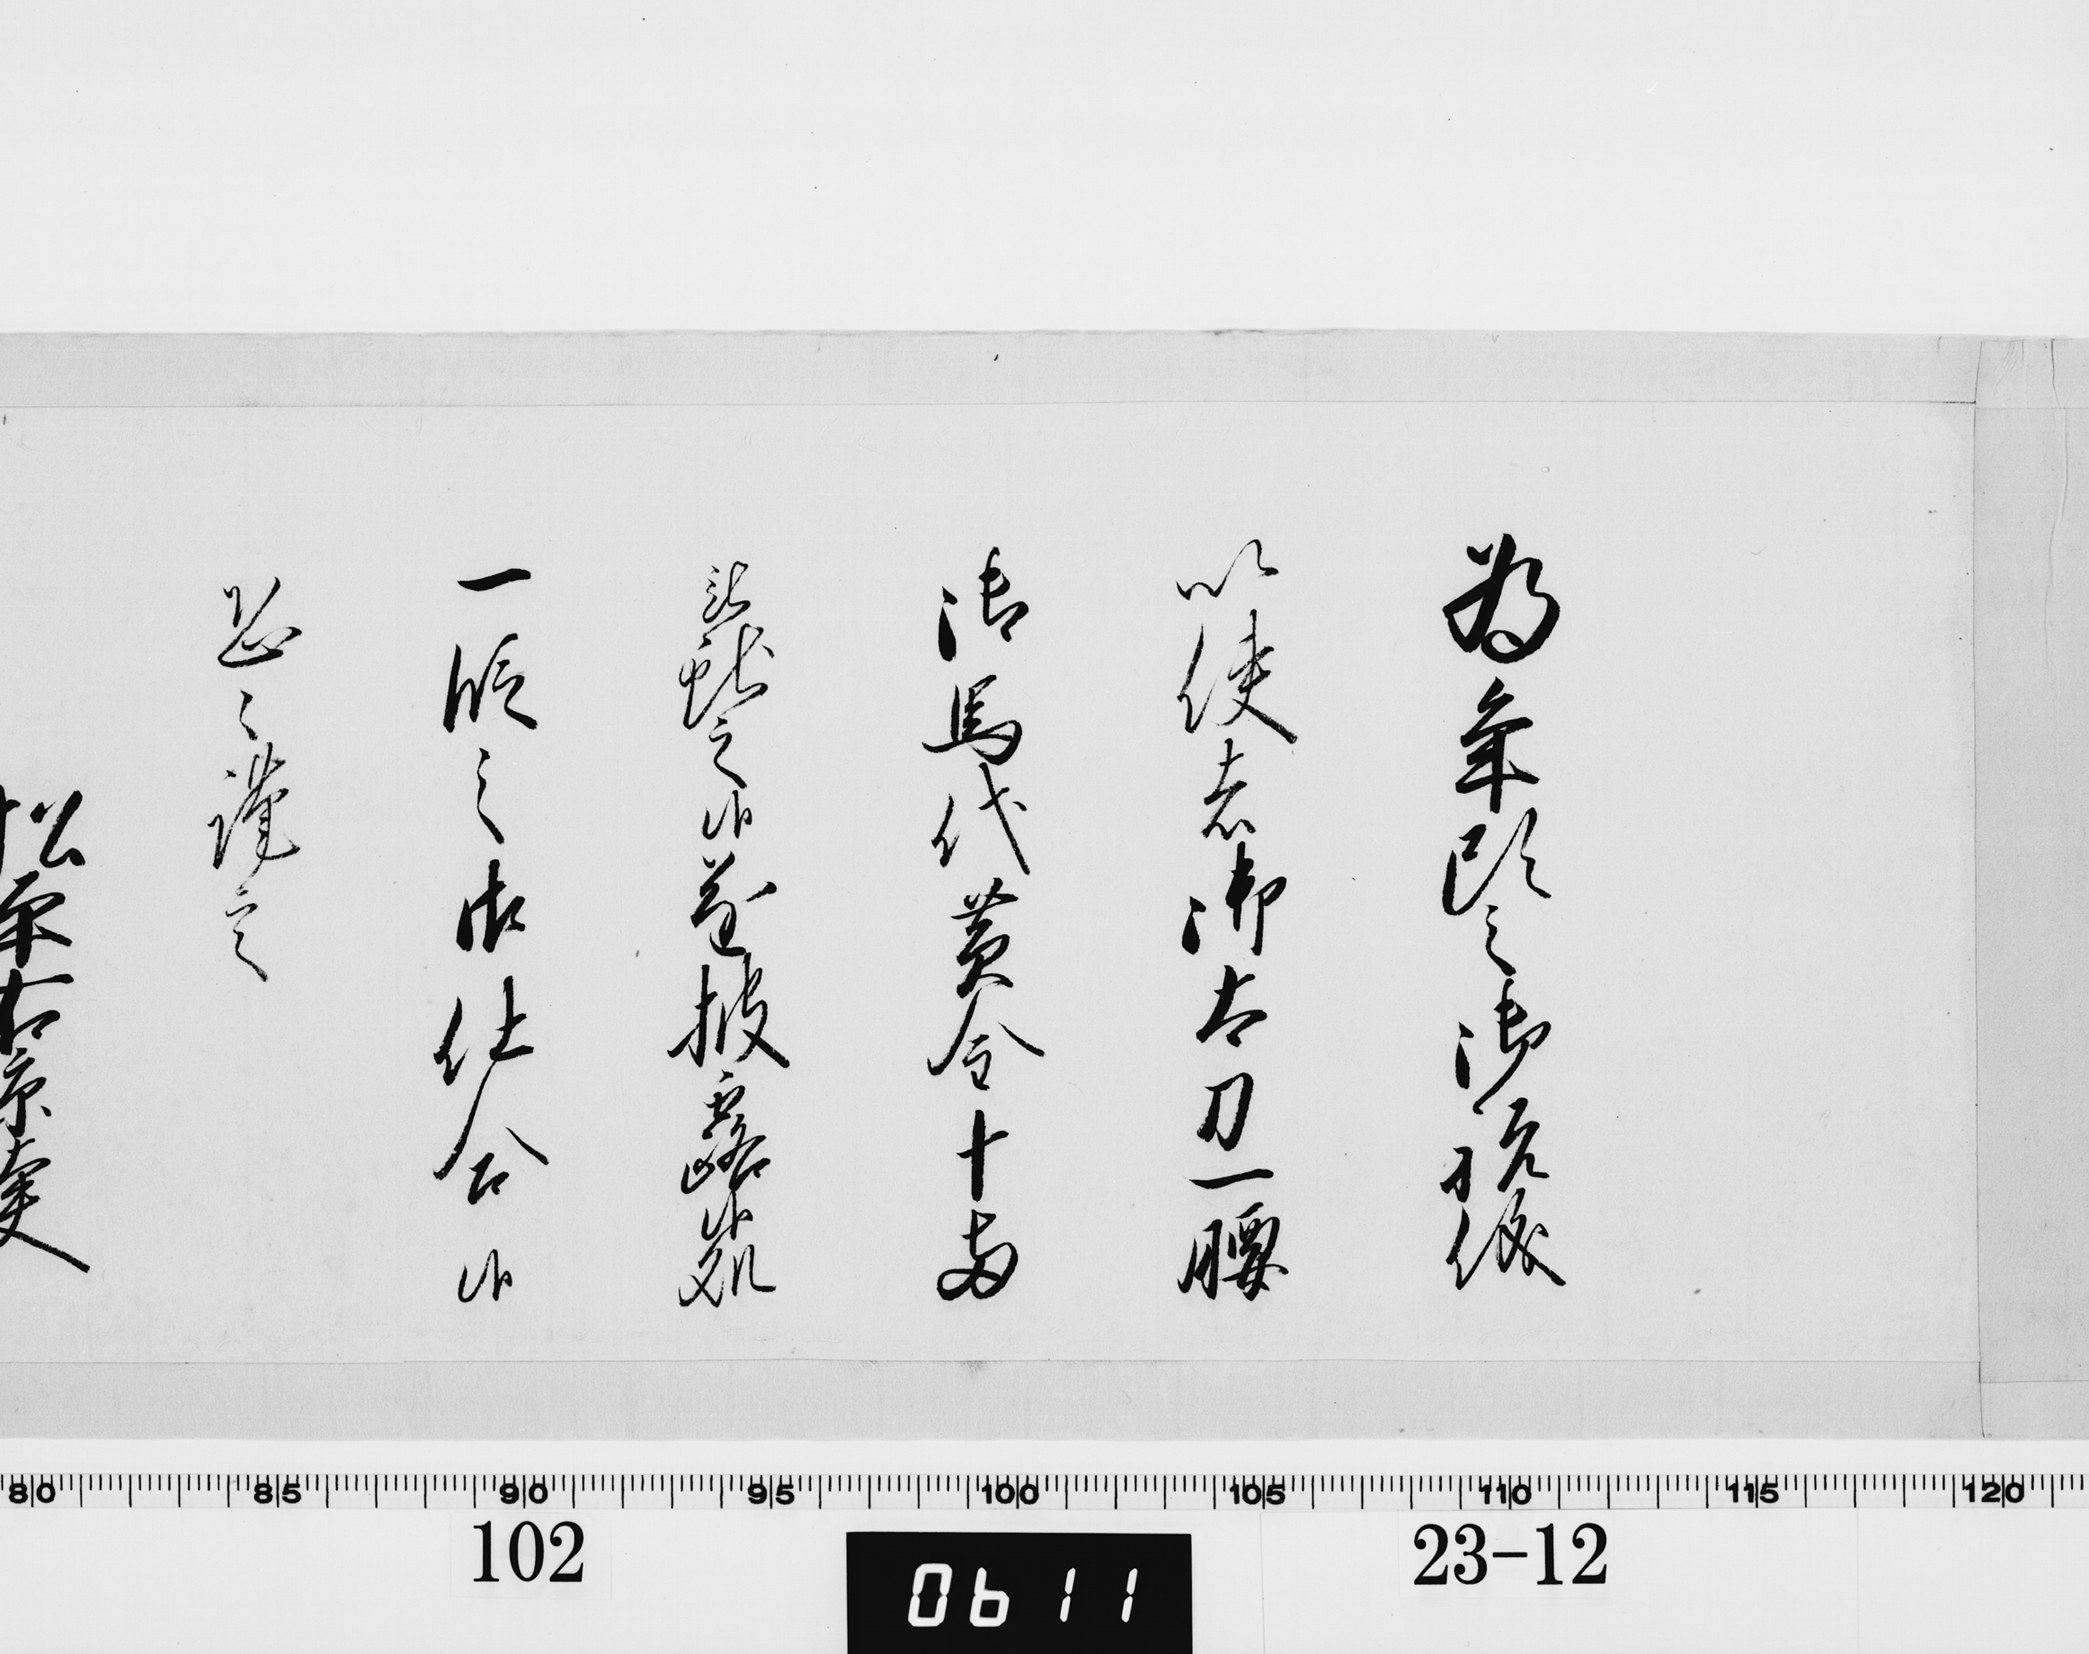 為年頭之御祝儀
以使者御太刀一腰
御馬代黄金十両
被献之候遂披露候処
一段之御仕合候
恐々謹言
松平右京大夫
80 85 90 95 100 105 110 115 120
102
0611
23-12